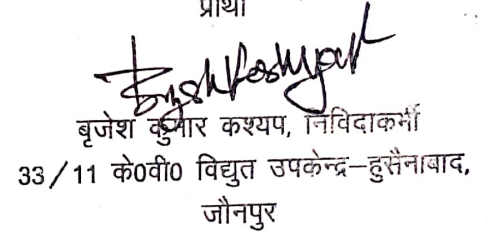 प्रार्थी
Brijesh Kashyap
बृजेश कुमार कश्यप, निविदाकर्मी
33/11 के0वी0 विद्युत उपकेन्द्र–हुसैनाबाद,
जौनपुर